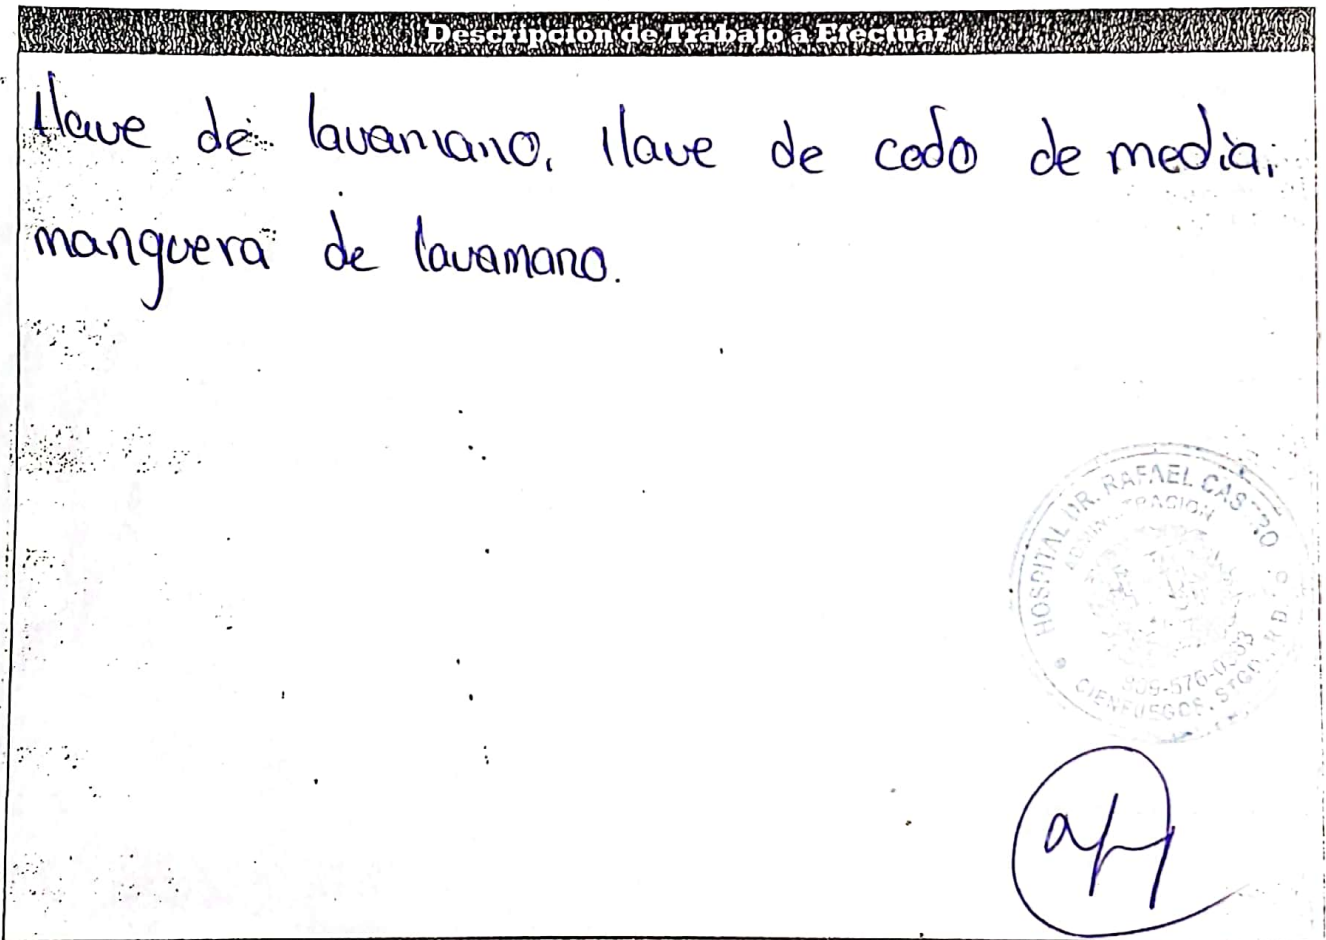 Descripcion de Trabajo a Efectuar
llave de lavamano, llave de codo de media,
manguera de lavamano.
HOSPITAL DR. RAFAEL CASTRO
CIENFUEGOS, STGO. R.D.